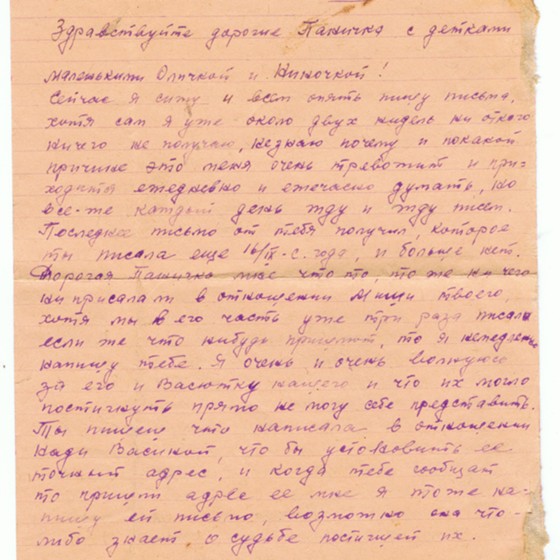 Здравствуйте дорогие Паничка с детками
маленькими Оличкой и Ниночкой!
Сейчас я сижу и всем опять пишу письма,
хотя сам я уже около двух нидель ни откого
ничего не получаю, незнаю почему и покакой
причине это меня очень тревожит и при-
ходится ежедневно и ежечасно думать, но
все-же каждый день жду и жду писем.
Последнее письмо от тебя получил, которое
ты писала еще 16/IX-с.года, и больше нет.
Дорогая Паничка мне что то, то же ни чего
ни присалали в отношении Миши твоего,
хотя мы в его часть уже три раза писали
если же что нибудь пришлют, то я немедленно
напишу тебе. Я очень и очень волнуюсь
за его и Васютку нашего и что их могло
постигнуть прямо не могу себе представить.
Ты пишеш что написала в отношении
Нади Васиной, что бы установить ее
точный адрес, и когда тебе сообщат
то пришли адрес ее мне я тоже на-
пишу ей письмо, возможно она что-
либо знает о судьбе постигшей их.